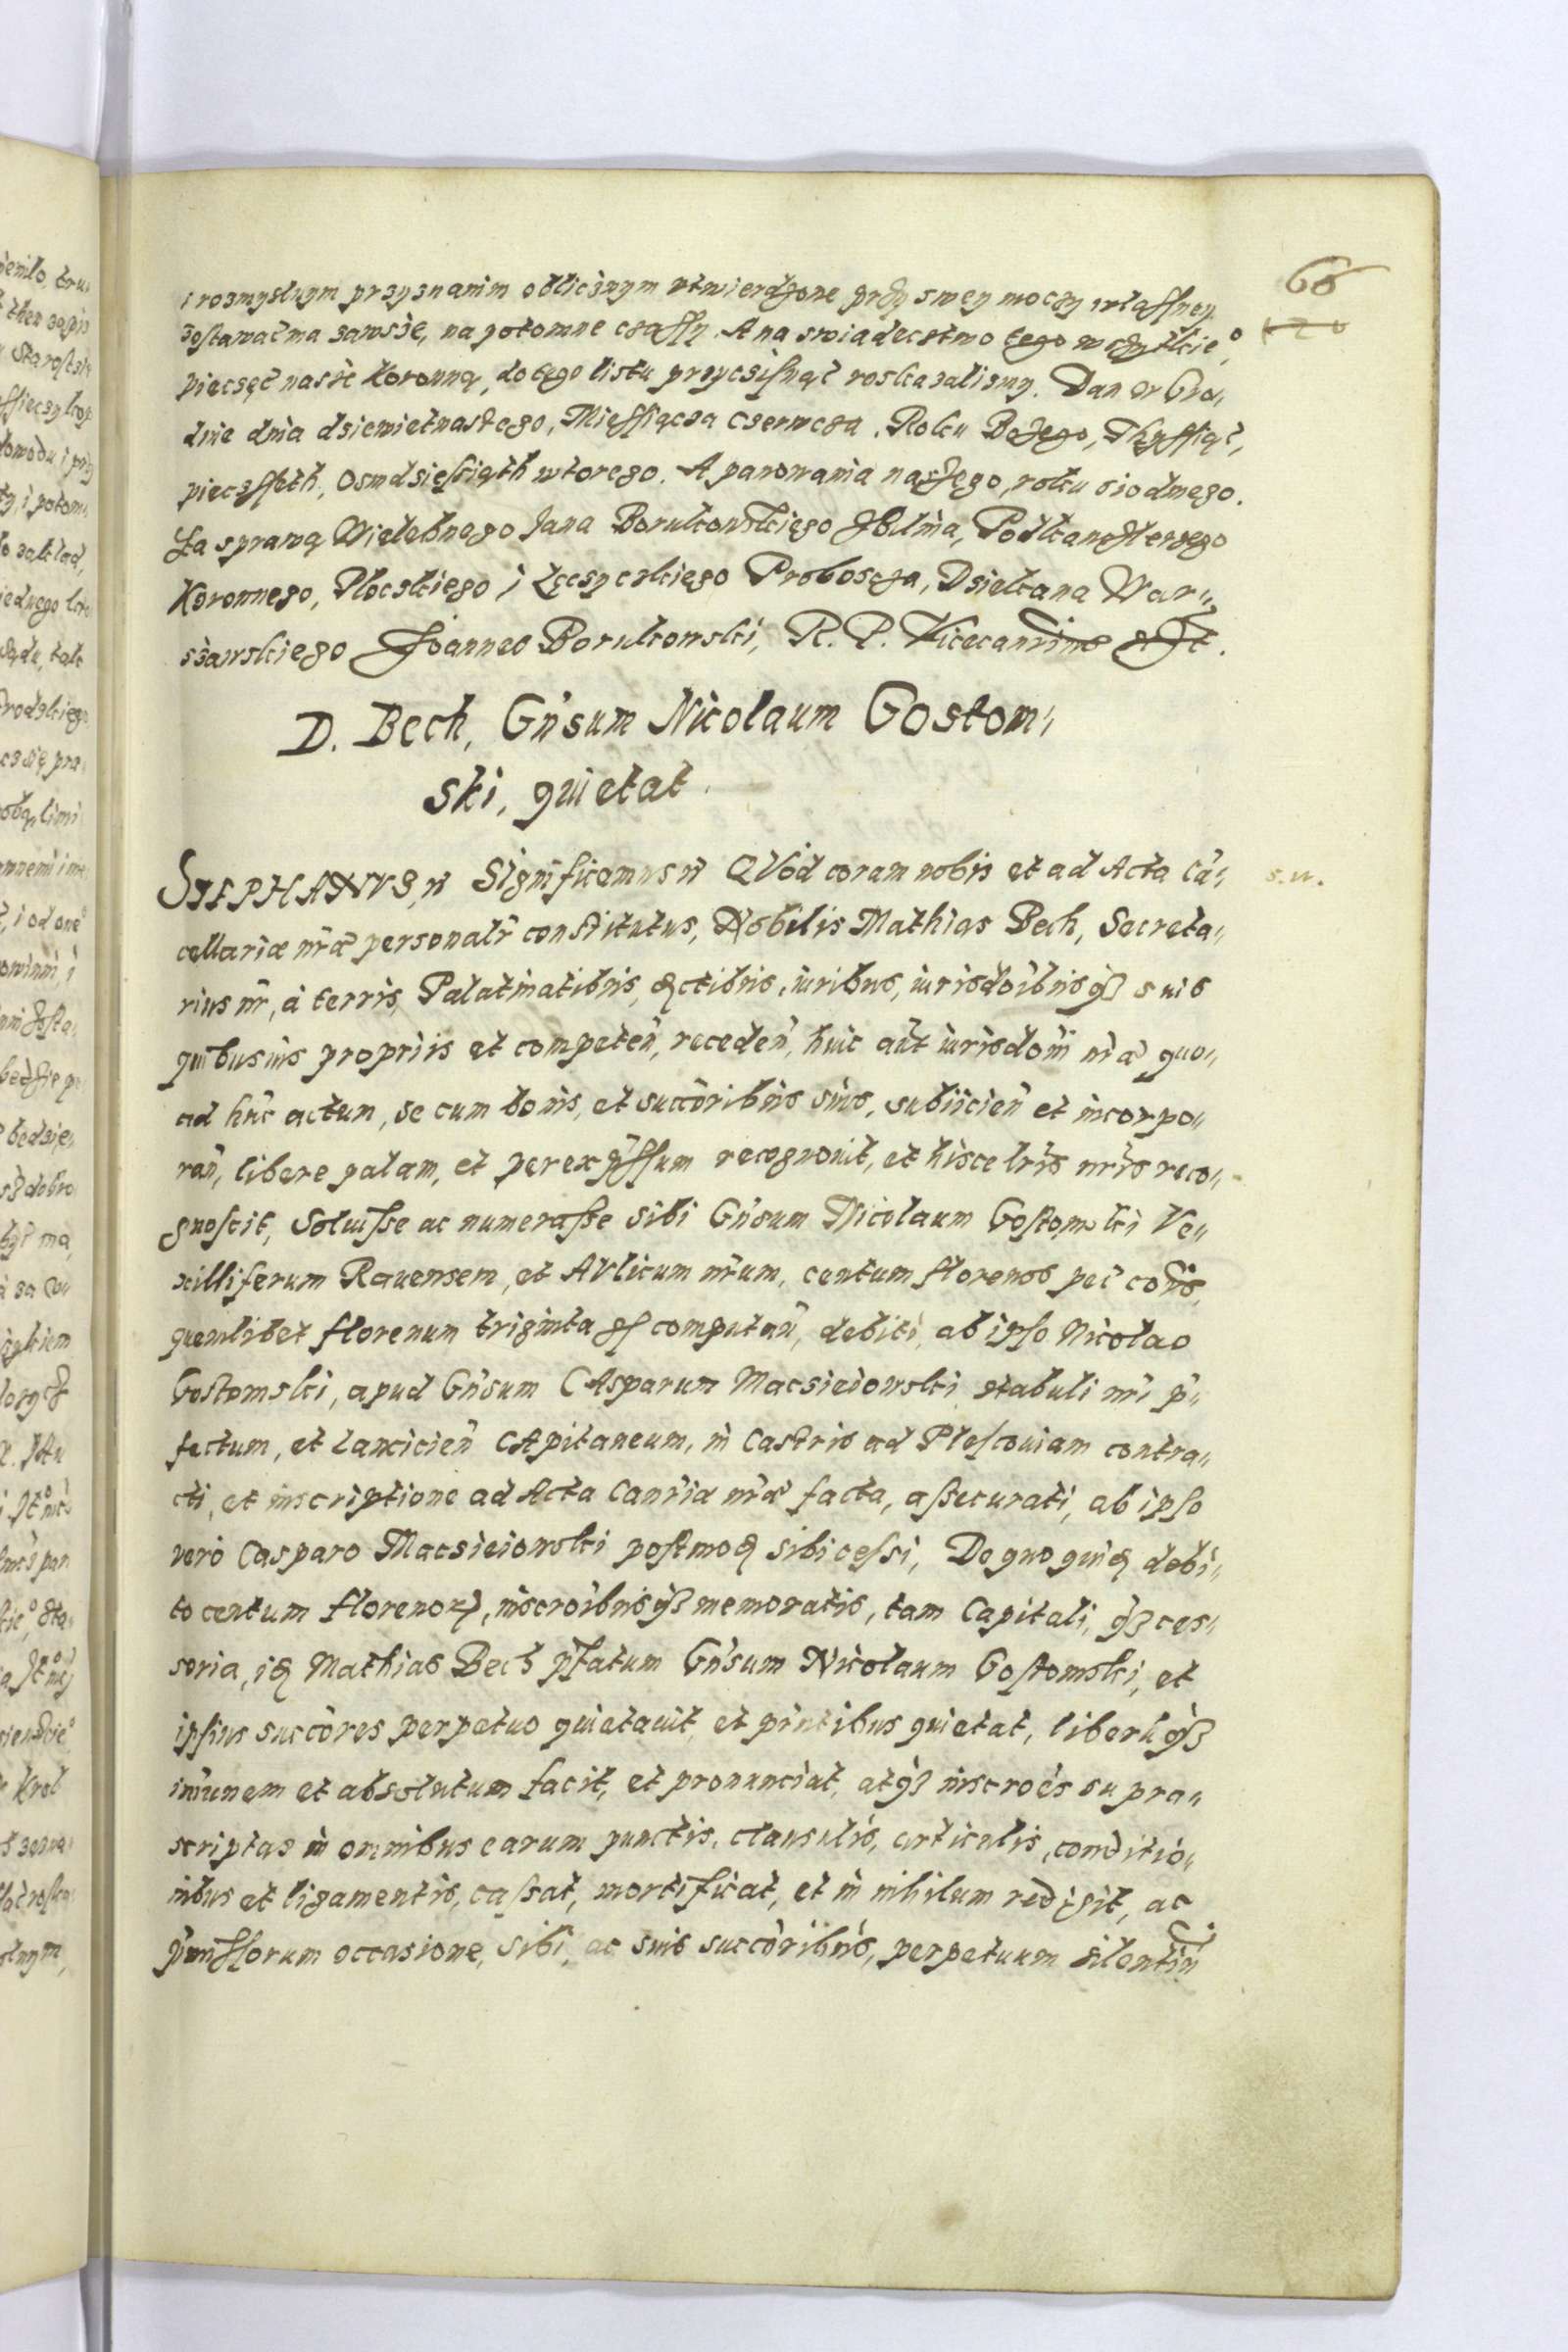 66
i rozmyslnym przyznanim oblicznym utwierdzone przy swey moczy wlassney
zostawać ma zawsze, na potomne czassy. A na swiadecztwo tego wszytkie°,
pieczęć naszę koronną, do tego listu przyczisnąć roskazalismy. Dan w Gro„
dnie dnia dziewietnastego, Miessiącza Czerwcza. Roku Bożego, Thyssiąć,
pieczsseth, osmdziesiąth wtorego. A panowania naszego, roku siodmego.
Za sprawą Wielebnego Jana Borukowskiego Hulma, Podkanclerzego
Koronnego, Plockiego i Lęczyczkiego Proboscza, Dziekana War„
szawskiego Joannes Borukowski, R. P. Vicecanrius sst.
D. Bech, Gn̄sum Nicolaum Gostom„
ski, quietat.
STEPHANVS, Significamus QVod coram nobis et ad Acta Cā„
cellariæ nr̄æ personalr̄ constitutus, Nobilis Mathias Bech, Secreta„
rius nr̄, a terris, Palatinatibus, distibus, iuribus, iurisdoībus qȝ suis
quibusuis propriis et competeñ, recedeñ, huic aūt iurisdoīi nr̄æ quo„
ad hūc actun, se cum bonis, et succōribus suis, subiicieñ et incorpo„
rañ, libere palam, et per expssum recognouit, et hisce lr̄is nr̄is reco„
gnoscit, Soluisse ac numerasse sibi Gn̄sum Nicolaum Gostomski Ve„
xilliferum Rauensem, et AVlicum nr̄um, centum florenos pec̄ cōis,
quemlibet florenum triginta gs computañ, debiti, ab ipso Nicolao
Gostomski, apud Gn̄sum CAsparum Macsieiowski stabuli nr̄i p̄„
fectum, et Lancicieñ CApitaneum, in Castris ad Plescouiam contra„
cti, et inscriptione ad Acta Canr̄iæ nr̄æ facta, assecurati, ab ipso
vero Casparo Macsieiowski postmodum sibi cessi, De quo quidem debi„
to centum florenorum, inscroībus qȝ memoratis, tam Capitali, qȝ ces„
soria, idem Mathias Bech pr̄fatum Gn̄sum Nicolaum Gostomski, et
ipsius succōres perpetuo quietauit, et pr̄ntibus quietat, liberū qȝ
imūnem et absolutum facit, et pronunciat, atqȝ inscroēs supra„
scriptas in omnibus earum punctis, clausulis, articulis, conditio„
nibus et ligamentis, cassat, mortificat, et in nihilum redigit, ac
pr̄missorum occasione, sibi, ac suis succōribus, perpetuum silentiū